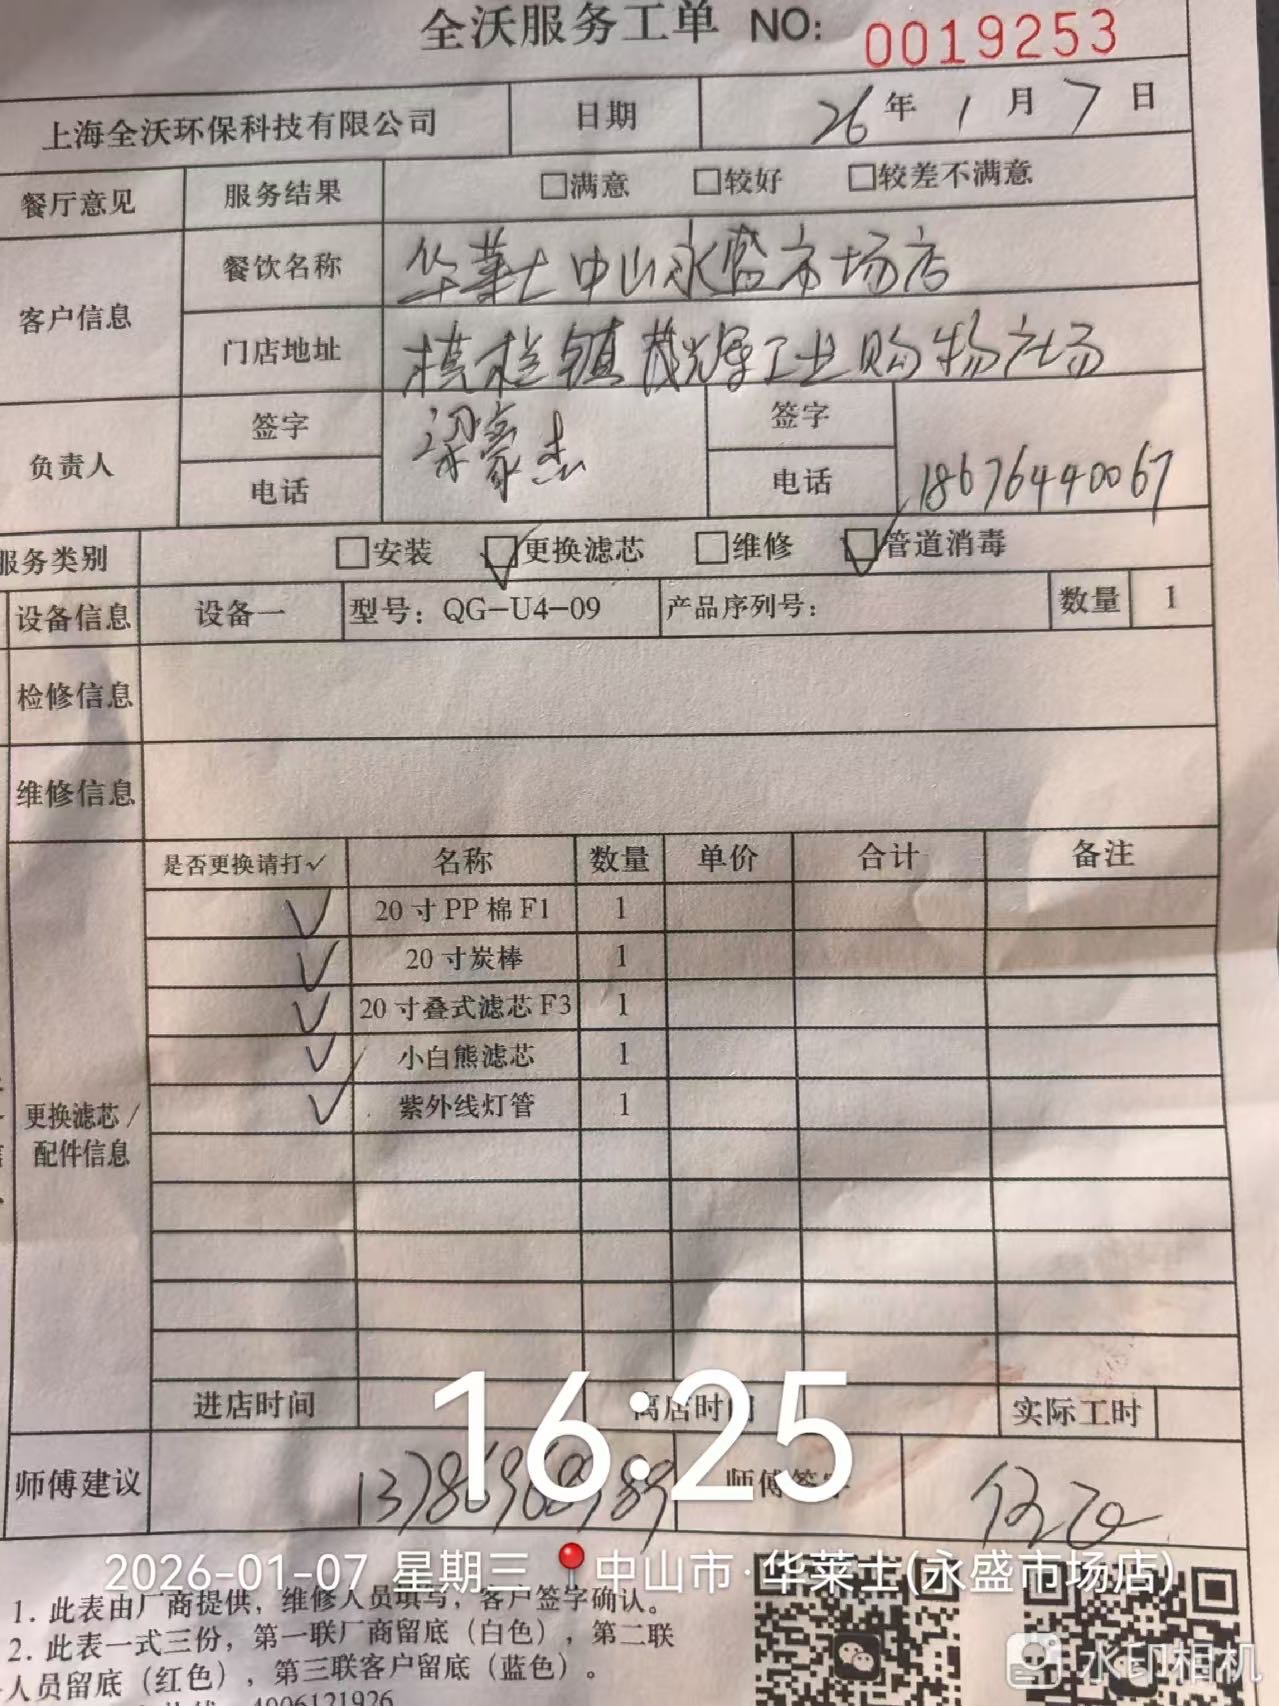 全沃服务工单 NO: 0019253
上海全沃环保科技有限公司 日期 26年1月7日
餐厅意见 服务结果 □满意 □较好 □较差不满意
客户信息 餐饮名称 华莱士中山永盛市场店
门店地址 横栏镇茂辉工业购物广场
负责人 签字 梁豪杰 签字
电话 电话 18676440067
服务类别 □安装 ☑更换滤芯 □维修 ☑管道消毒
设备信息 设备一 型号：QG-U4-09 产品序列号： 数量 1
检修信息
维修信息
是否更换请打√ 名称 数量 单价 合计 备注
√ 20寸PP棉F1 1
√ 20寸炭棒 1
√ 20寸叠式滤芯F3 1
√ 小白熊滤芯 1
√ 紫外线灯管 1
更换滤芯/
配件信息
进店时间 离店时间 实际工时
16:25
师傅建议 师傅签字
2026-01-07 星期三 中山市·华莱士(永盛市场店)
1. 此表由厂商提供，维修人员填写，客户签字确认。
2. 此表一式三份，第一联厂商留底（白色），第二联
人员留底（红色），第三联客户留底（蓝色）。
4006121926
水印相机